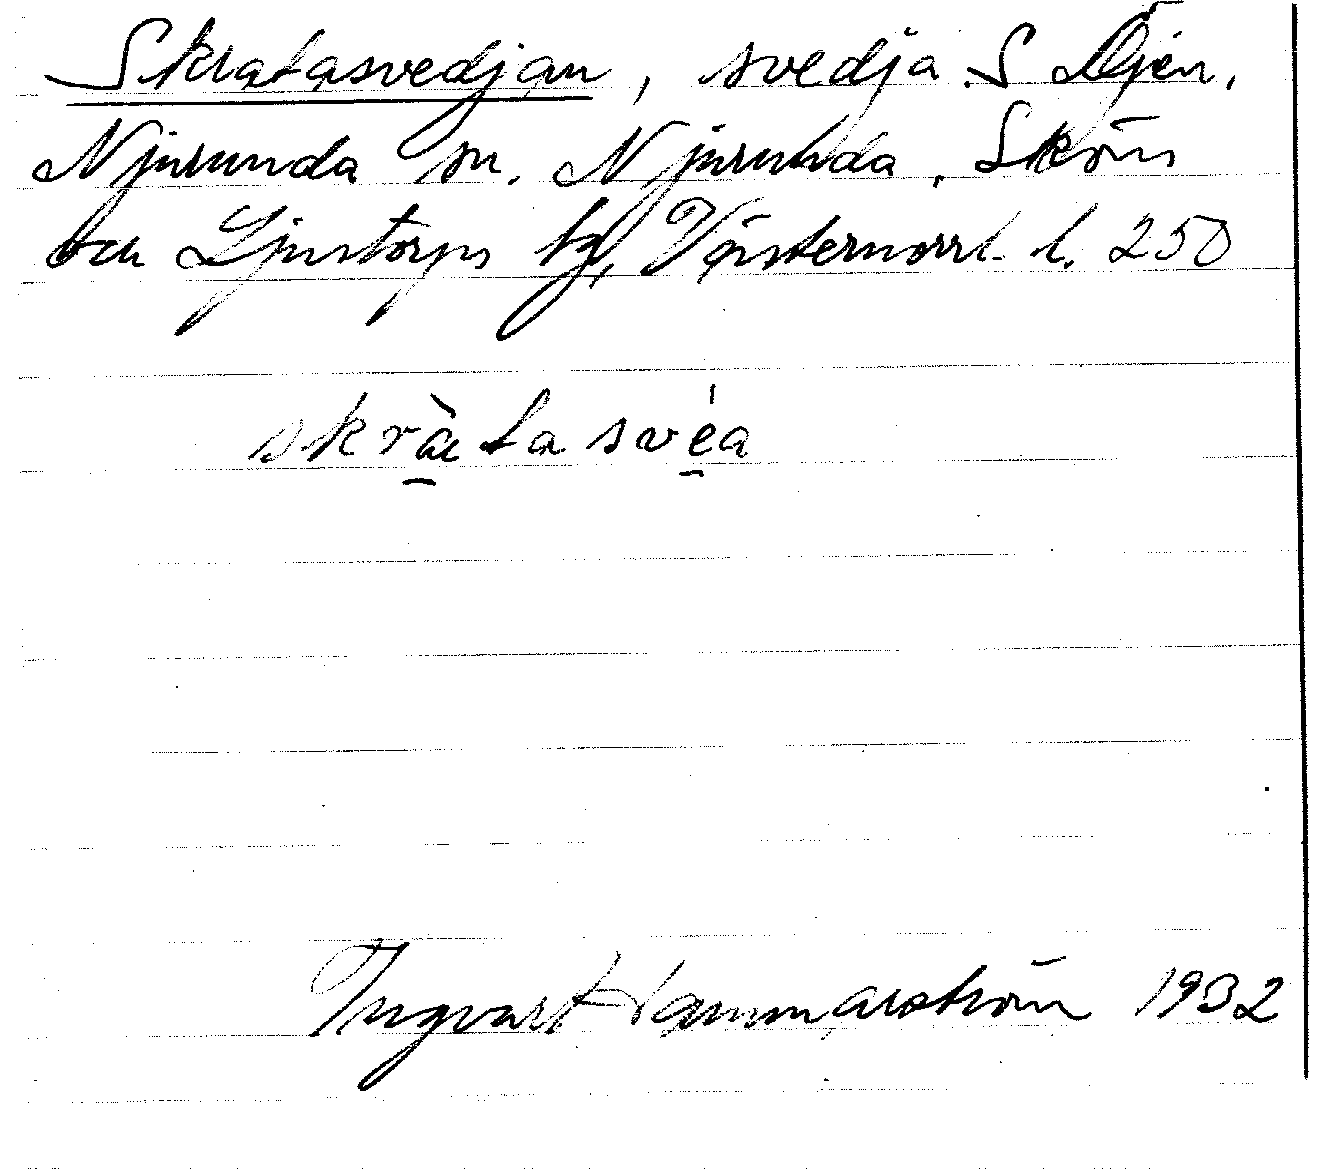 Skratasvedjan, svedja S Djen.
Njurunda sn. Njurunda, Sköns
och Ljustorps tg, Västernorrl. l. 250
skràtasvéa
Ingvart Hammarström 1932